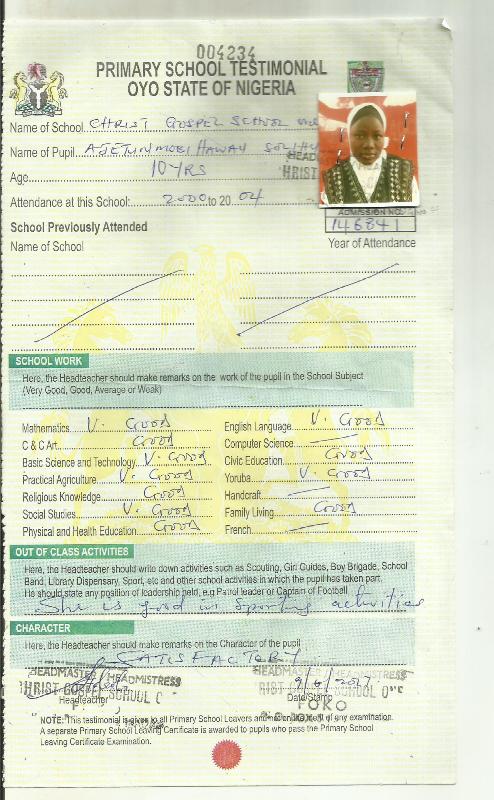 004234
PRIMARY SCHOOL TESTIMONIAL
OYO STATE OF NIGERIA
Name of School CHRIST GOSPEL SCHOOL
Name of Pupil AJETUNMOBI HAWAH
HEADM
HRIST
Age 10 YRS
Attendance at this School: 2000 to 20 04
ADMISSION NO.
146841
School Previously Attended
Name of School
Year of Attendance
SCHOOL WORK
Here, the Headteacher should make remarks on the work of the pupil in the School Subject
(Very Good, Good, Average or Weak)
Mathematics V. Good English Language V. Good
C & C Art Good Computer Science
Basic Science and Technology V. Good Civic Education Good
Practical Agriculture V. Good Yoruba V. Good
Religious Knowledge Good Handcraft
Social Studies V. Good Family Living Good
Physical and Health Education Good French
OUT OF CLASS ACTIVITIES
Here, the Headteacher should write down activities such as Scouting, Girl Guides, Boy Brigade, School
Band, Library Dispensary, Sport, etc and other school activities in which the pupil has taken part.
He should state any position of leadership held, e.g Patrol leader or Captain of Football
She is good in sporting activities
CHARACTER
Here, the Headteacher should make remarks on the Character of the pupil
SATISFACTORY
HEADMASTER / HEADMISTRESS
HRIST GOSPEL SCHOOL
HEADMASTER / HEADMISTRESS
SCHOOL
FOKO
9/6/2017
Headteacher Date/Stamp
NOTE: This testimonial is given to all Primary School Leavers and of any examination.
A separate Primary School Leaving Certificate is awarded to pupils who pass the Primary School
Leaving Certificate Examination.